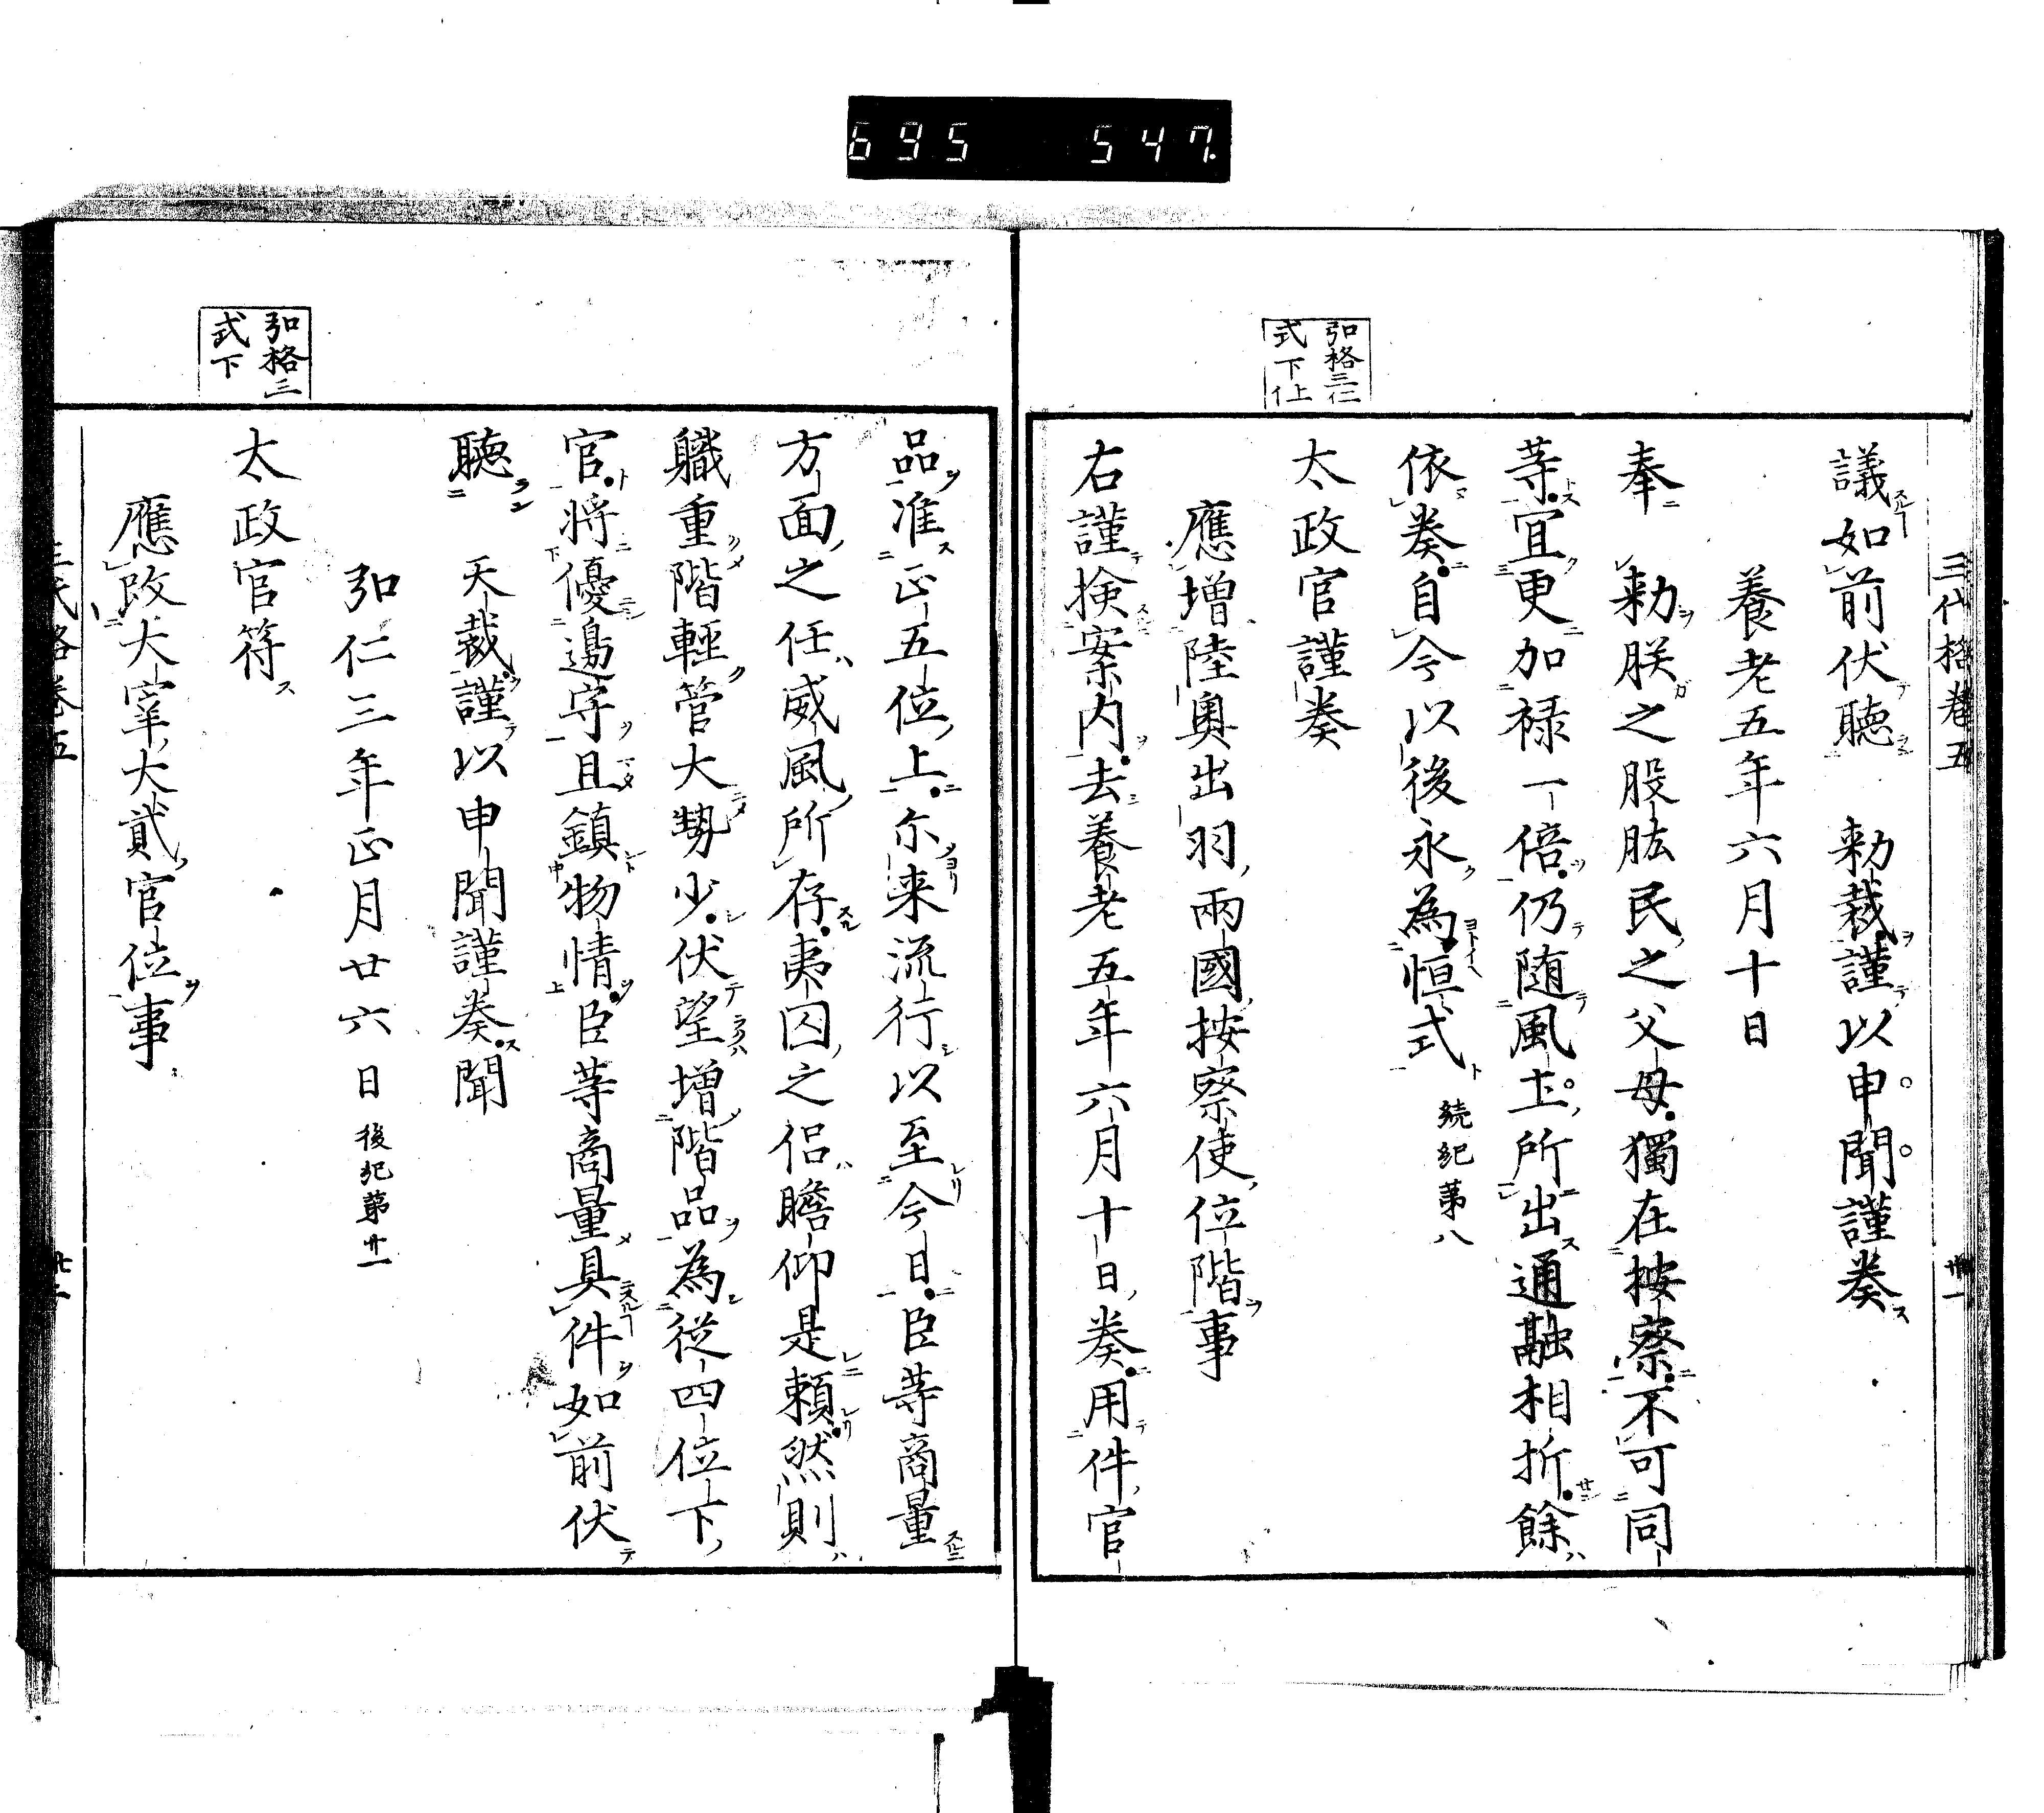 695 547.
三代格巻五 廿一
弘格三仁
式下上仁
議如前伏聴 勅裁謹以申聞謹奏
養老五年六月十日
奉 勅朕之股肱民之父母獨在按察不可同
等宜更加禄一倍仍随風土所出通融相折餘
依奏自今以後永為恒式 続紀第八
太政官謹奏
應増陸奥出羽兩國按察使位階事
右謹検案内去養老五年六月十日奏用件官
弘格三
式下
品准正五位上尓来流行以至今日臣等商量
方面之任威風所存夷囚之侶瞻仰是頼然則
職重階輕管大勢少伏望増階品為従四位下
官将優邊守且鎮物情臣等商量具件如前伏
聴 天裁謹以申聞謹奏聞
弘仁三年正月廿六日 後紀第廿一
太政官符
應改大宰大貳官位事